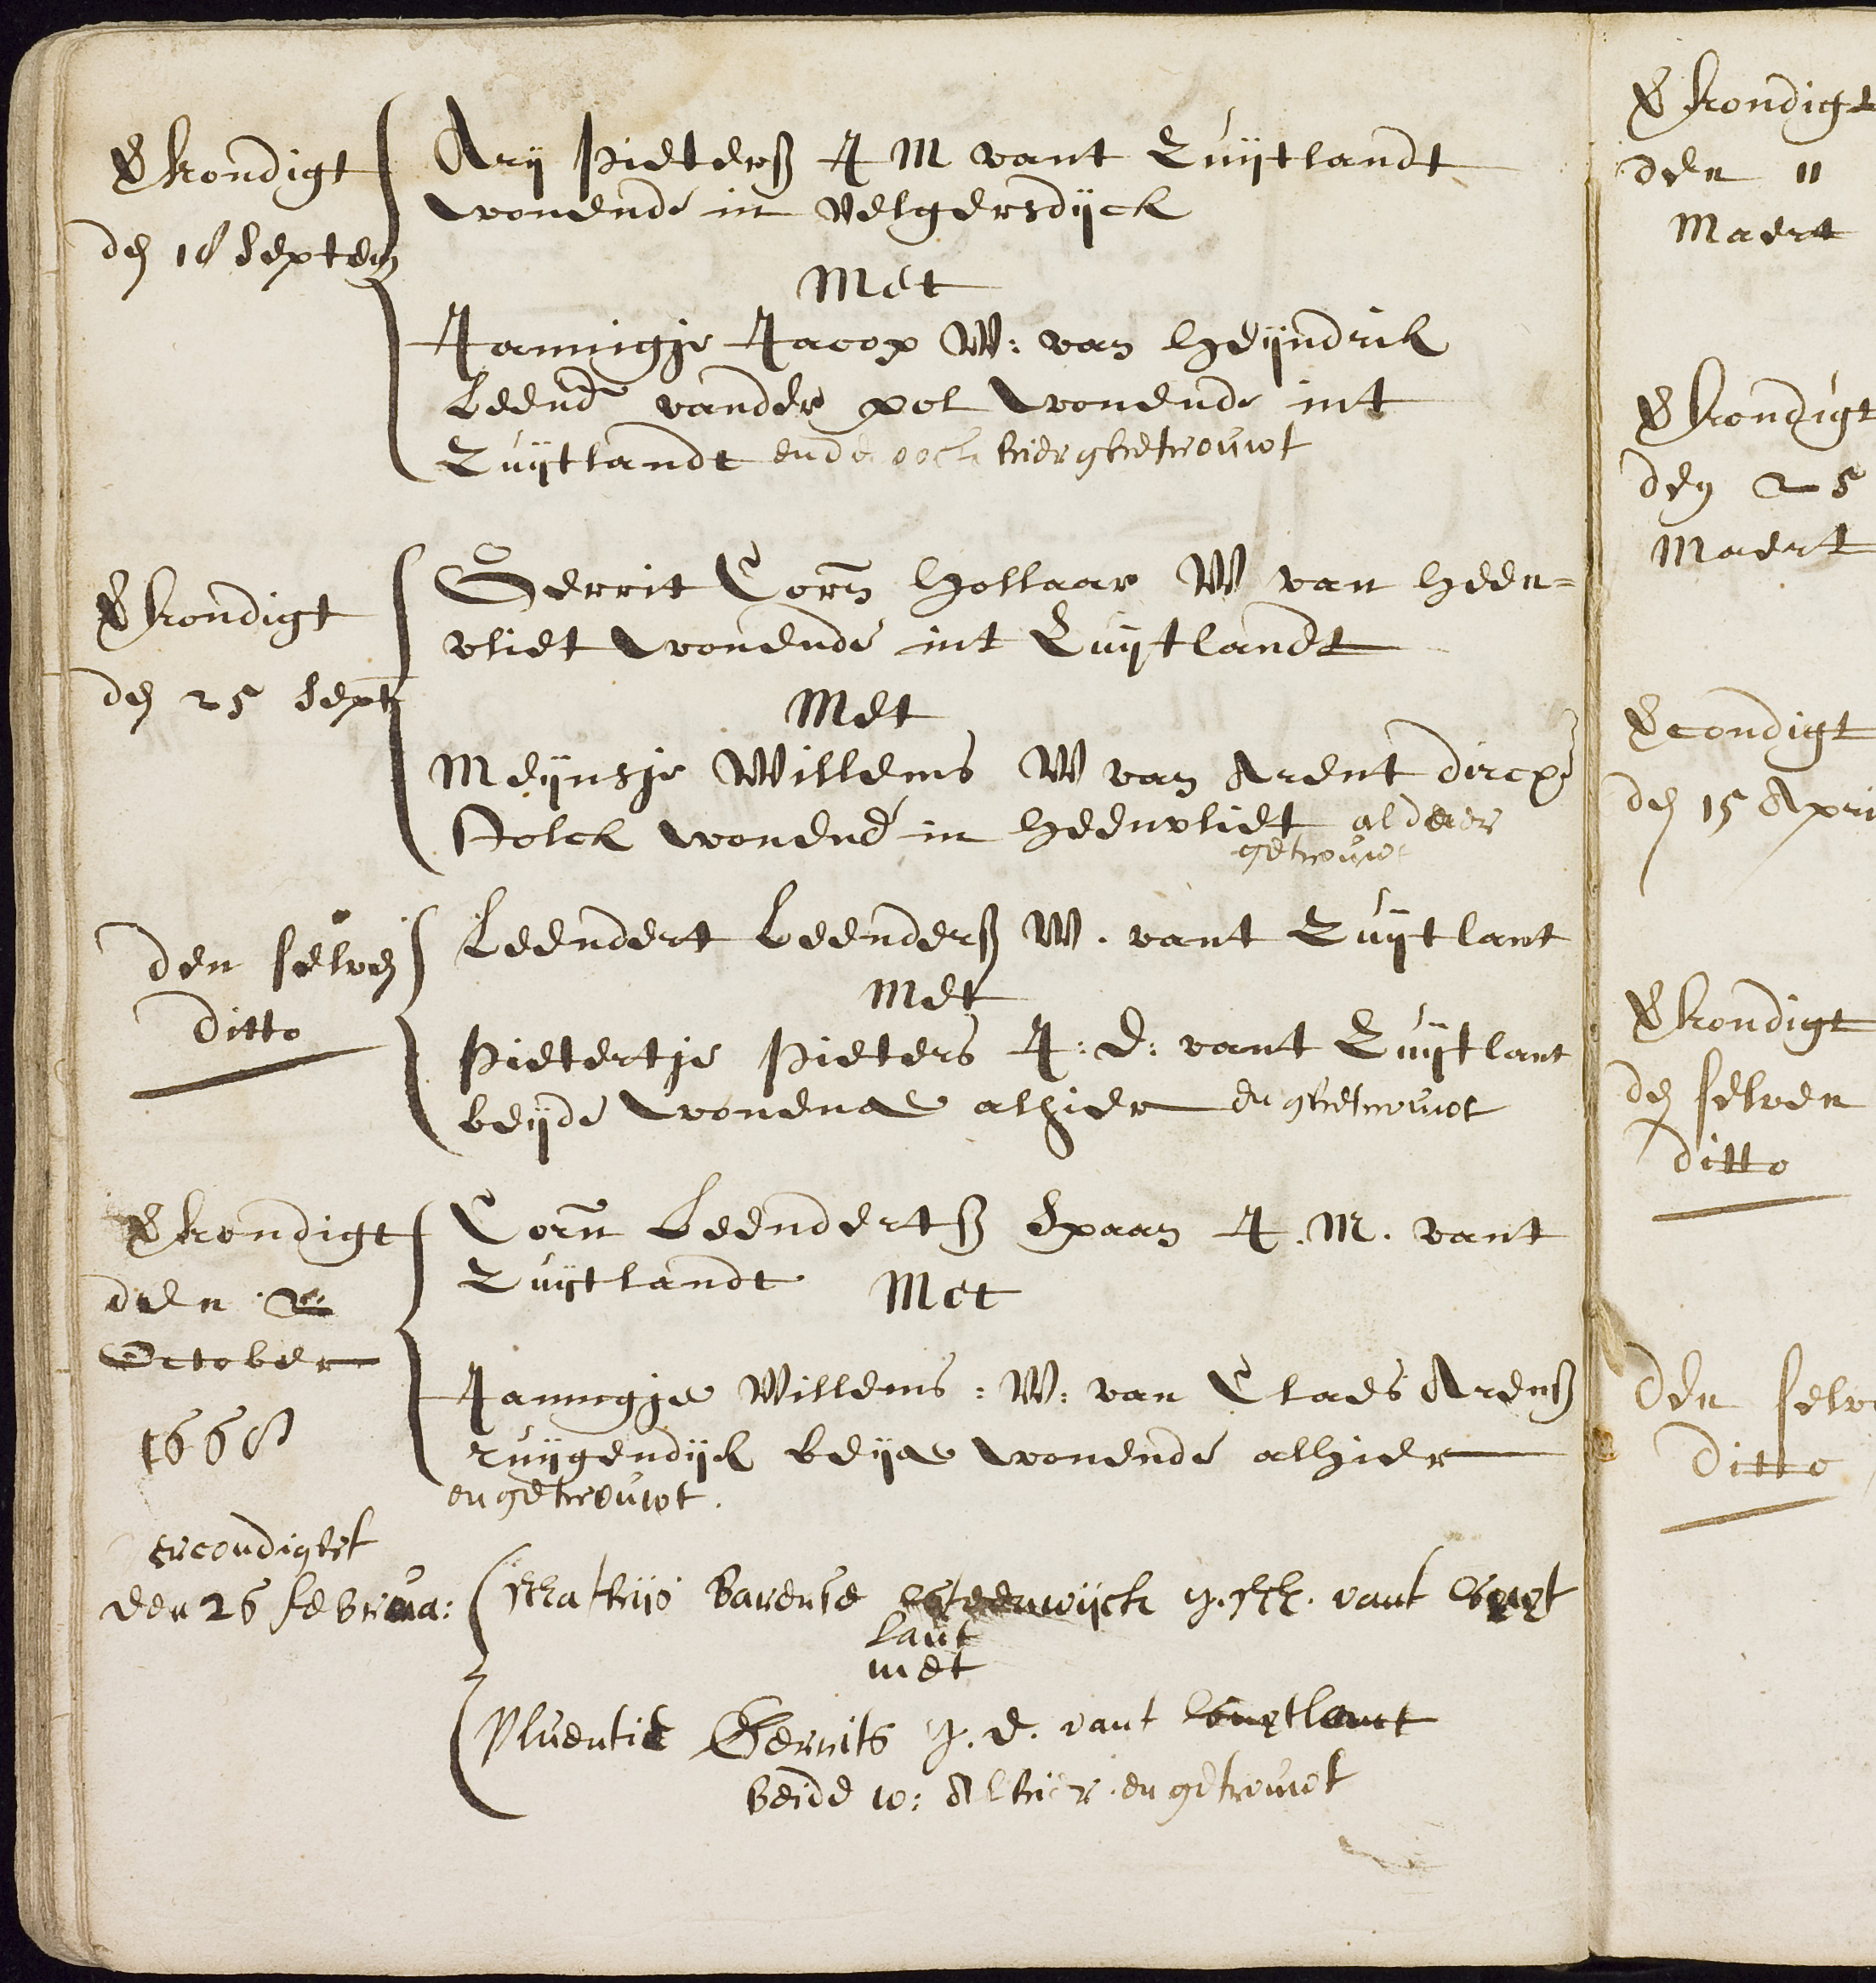 Vkondigt
den 18 Septem
Arij Pieterss J M vant Zuijtlandt
wonende in Velgersdijck
Met
Jannigje Jacop W: van Heijndrik
Leend vander pol wonende int
Zuijtlandt ende oock hier ghetrouwt
Vkondigt
den 25 Sept
Gerrit Corn Hollaar W van Heen=
vliet wonende int Zuijtlandt
Met
Meijnsje Willems W van Arent dircx
Holck wonend in Heenvliet aldaer
getrouwt
den selven
ditto
Leendert Leenderss W. vant Zuijtlant
Met
Pietertje Pieters J: D: vant Zuijtlant
beijde wonende alhier en ghetrouwt
Vkondigt
den 2
October
1668
Corn Leendertss Spaan J. M. vant
Zuijtlandt Met
Jannigje Willems: W: van Claes Arenss
ruijgendijk beijde wonende alhier
en getrouwt.
vercondight
den 26 februa:
Mathijs Barense Steenwijck j. M. vant Suijt
lant
met
Pluentie Gerrits J. d. vant Suijtlant
beide w: Alhier en getrouwt
Vkondigt
den 11
Maert
Vkondigt
den 25
Maert
Vcondigt
den 15 Apri
Vkondigt
den selven
ditto
Den selve
Ditto